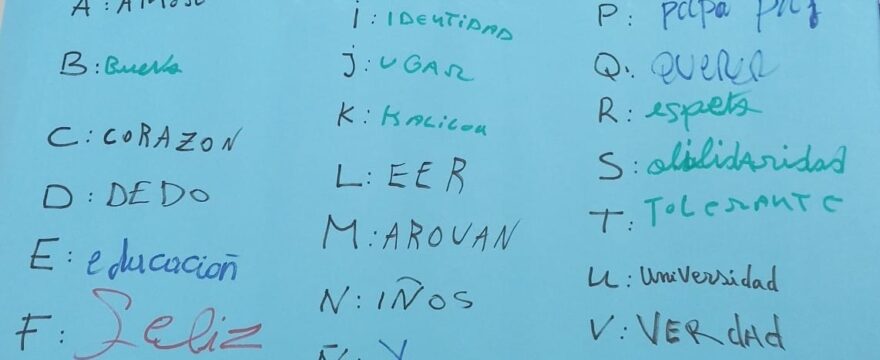 A:
B: Buena
C: CORAZON
D: DEDO
E: educacioñ
F: Feliz
i: IDENTIDAD
j: UGAR
K:
L: EER
M: AROUAN
N: IÑOS
P: papa
Q: QUERER
R: espeto
S: olilidaridad
T: TOLERANTE
U: universidad
V: VERdAd